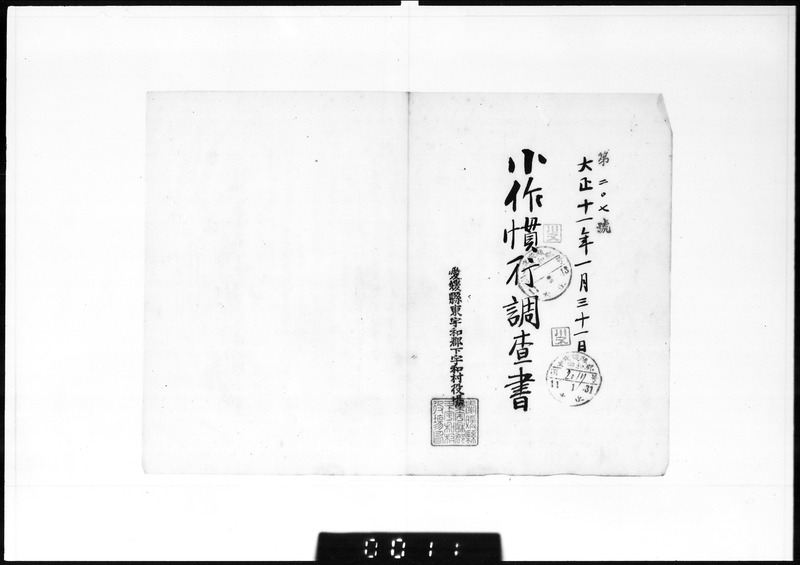 第二〇七號
大正十一年一月三十一日
小作慣行調査書
愛媛縣東宇和郡下宇和村役場
0011